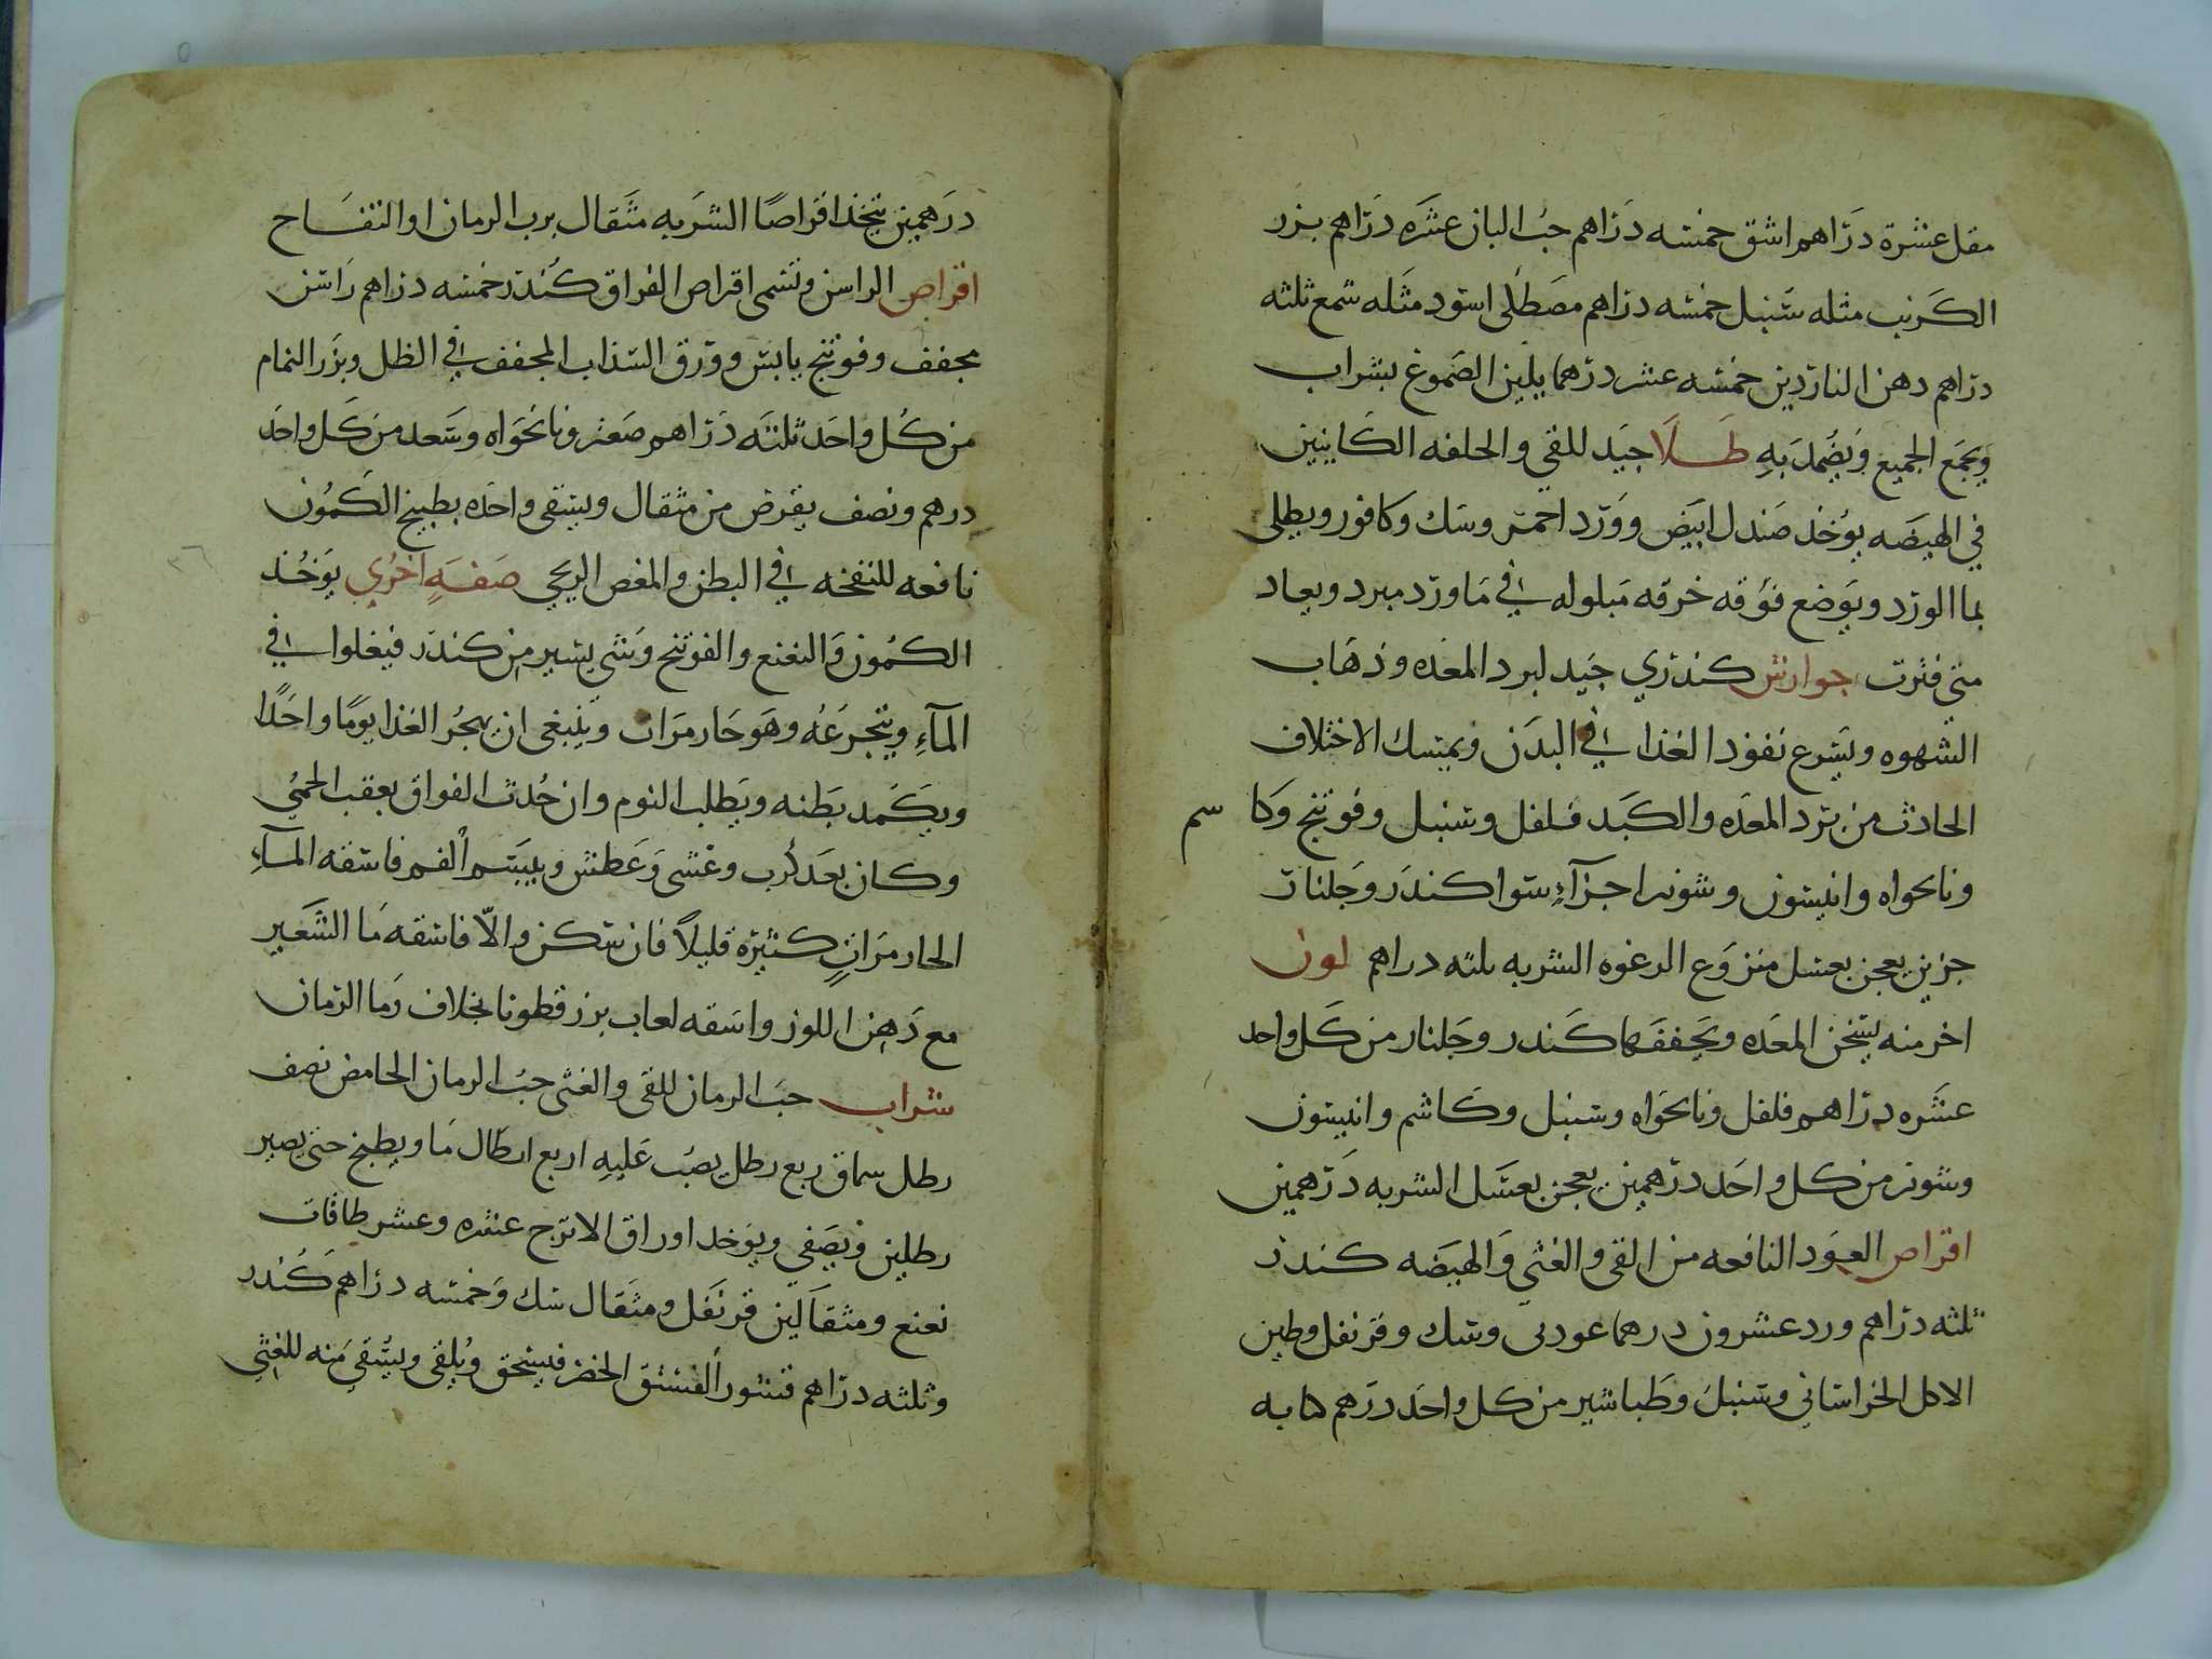 مقل عشرة دراهم اشق خمسه دراهم حب البان عشره دراهم بزر
الكرنب مثله سنبل خمسه دراهم مصطلى اسود مثله شمع ثلثه
دراهم دهن الناردين خمسه عشر درهما يلين الصموغ بشراب
ويجمع الجميع ويضمد به طلا جيد للقى والحلفه الكاينين
في الهيضه يوخذ صندل ابيض وورد احمر وسك وكافور ويطلى
بما الورد ويوضع فوقه خرقه مبلوله في ما ورد مبرد ويعاد
متى فترت جوارش كندري جيد لبرد المعده وذهاب
الشهوه ويسرع نفوذ الغذا في البدن ويمسك الاختلاف
الحادث من برد المعده والكبد فلفل وسنبل وفوتنج وكا سم
ونانخواه وانيسون وشونير اجزآء سوا كندر وجلنار
جزين يعجن بعسل منزوع الرغوه الشربه ثلثه دراهم لون
اخر منه يسخن المعده ويجففها كندر وجلنار من كل واحد
عشره دراهم فلفل ونانخواه وسنبل وكاشم وانيسون
وشونير من كل واحد درهمين يعجن بعسل الشربه درهمين
اقراص العود النافعه من القى والغثى والهيضه كندر
ثلثه دراهم ورد عشرون درهما عود نى وسك وقرنفل وطين
الاكل الخراساني وسنبل وطباشير من كل واحد درهم كبابه
درهمين يتخذ اقراصا الشربه مثقال برب الرمان او التفاح
اقراص الراسن وتسمى اقراص الفواق كندر خمسه دراهم راسن
مجفف وفوتنج يابس وورق السذاب المجفف في الظل وبزر النمام
من كل واحد ثلثه دراهم صعتر ونانخواه وسعد من كل واحد
درهم ونصف يقرض من مثقال ويسقى واحده بطبيخ الكمون
نافعه للنفخه في البطن والمغص الريحي صفه اخري يوخذ
الكمون والنعنع والفوتنج وشي يسير من كندر فيغلوا في
المآء ويتجرعه وهو حار مرات وينبغى ان يهجر الغذا يوما واحدا
ويكمد بطنه ويطلب النوم وان حدث الفواق بعقب الحمى
وكان بعد كرب وغشى وعطش ويبس الفم فاسقه المآء
الحار مرات كثيره قليلا فان سكن والا فاسقه ما الشعير
مع دهن اللوز واسقه لعاب بزر قطونا بخلاف رما الرمان
شراب حب الرمان للقى والغثى حب الرمان الحامض نصف
رطل سماق ربع رطل يصب عليه اربع ارطال ما ويطبخ حتى يصير
رطلين ويصفى ويوخد اوراق الاترج عشره وعشر طاقات
نعنع ومثقالين قرنفل ومثقال سك وخمسه دراهم كندر
وثلثه دراهم قشور الفستق الخضر فيسحق ويلقى ويسقى منه للغثي
٣٦